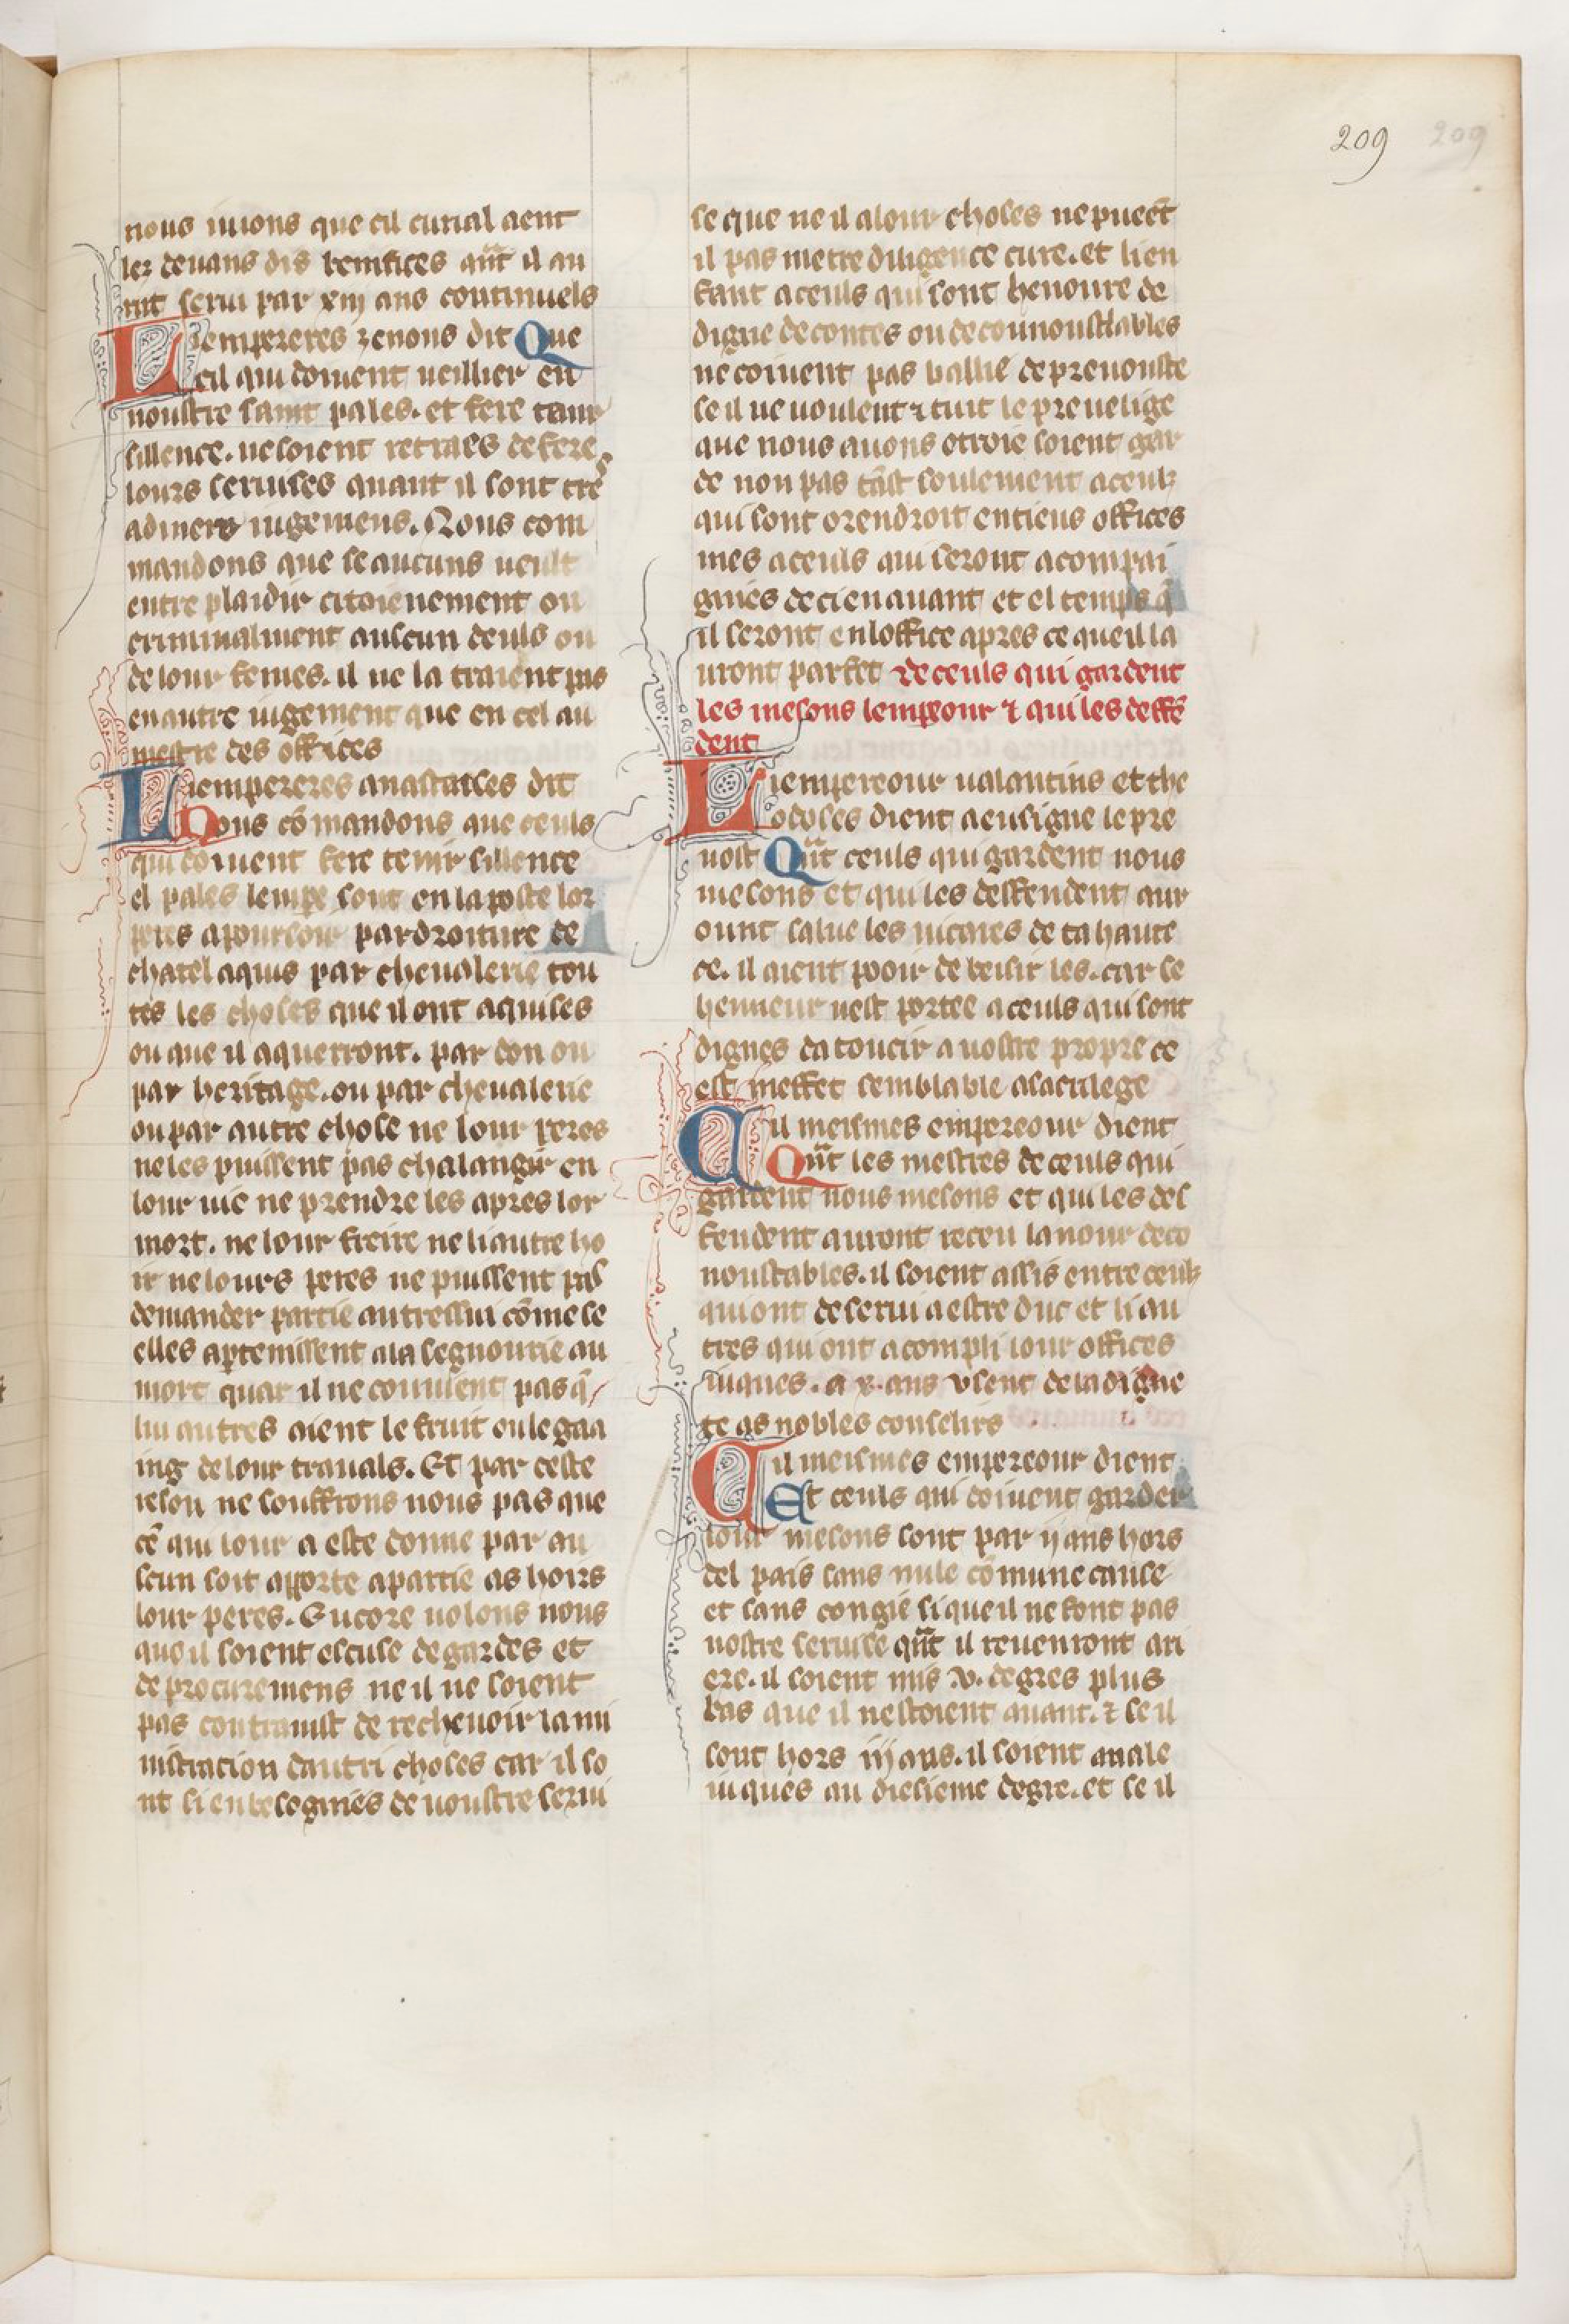 209 209
nous iuions que cil curial aent
lez deuans dis benifices qu̅t il au
rut serui par xiij ans continuels
Lempereres zenons dit Que
cil qui doiuent ueillier en
noustre saint pales. et fere tenir
sillence. ne soient retraes de fere
lours seruises quant il sont tre
a diuers iugemens. Nous com
mandons que se aucuns ueult
entre plaidir citoienement ou
criminalment auscun deuls ou
de lour femes. il ne la traient pas
en autre iugement que en cel au
mestre des offices
Liempereres anastaises dit
Nous co̅mandons que ceuls
qui doiuent fere tenir sillence
el pales lempe̅ sont en la poste lor
peres a pourSoir par droiture de
chatel aquis par cheualerie tou
tes les choses que il ont aquises
ou que il aquerront. par don ou
par heritage. ou par cheualerie
ou par autre chose ne lour peres
ne les puissent pas chalangir en
lour uie ne prendre les apres lor
mort. ne lour freire ne li autre ho
ir ne lours peres ne puissent pas
demander partie autressui co̅me se
elles apartenissent a la segnourie au
mort quar il ne couuient pas q̅
lui autres aient le fruit ou le gaa
ing de lour trauals. Et par ceste
reson ne souffrons nous pas que
ce̅ qui lour a este donne par au
scun soit aporte a partie as hoirs
lour peres. Encore uolons nous
que il soient escuse de gardes et
de procuremens ne il ne soient
pas contraint de rechevoir lami
nistracion dautri choses car il so
nt si enbesegniés de noustre serui
se que ne il a lour choses ne puect
il pas metre diligence cure. et lien
fant a ceuls qui sont henoure de
digne de contes ou de counoustables
ne coiuent pas ballié de prenouste
se il ne uoulent ⁊ tuit le preuelige
que nous auons otroie soient gar
de non pas ta̅st soulement a ceulz
qui sont orendroit en tieus offices
mes a ceuls qui seront acompai
gniés de ci en auant et el temps q̅
il seront en loffice apres ce que il la
uront parfet De ceuls qui gardent
les mesons lempeour ⁊ qui les deffe̅
dent
Liempereour ualantins et the
odoses dient a ensigne le pre
uost Qu̅t ceuls qui gardent nous
mesons et qui les deffendent aur
ount salue les uicaires de ta haute
ce. il aient pooir de beisir les. car se
henneur nest portee a ceuls qui sont
dignes da toucir a nostre propre ce
est meffet semblable a sacrilege
Cil meismes empereour dient
Qu̅t les mestres de ceuls qui
gardent nous mesons et qui les def
fendent auront receu lanour de co
noustables. il soient assis entre ceulz
qui ont deserui a estre duc et li au
tres qui ont acompli lour offices
iuques. a x. ans usent de la digne
te as nobles conseliers
Cil meismes empereour dient
Et ceuls qui doiuent garder
lour mesons sont par ij ans hors
del pais sans nule co̅mune cause
et sans congié si que il ne font pas
nostre seruise qu̅t il reuenront ari
ere. il soient mis v. degres plus
bas que il nestoient auant. ⁊ se il
sont hors iij ans. il soient auale
iuques au diesieme degre. et se il